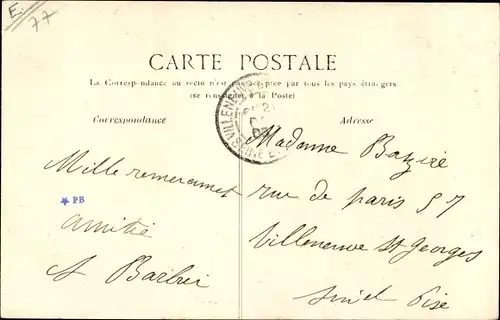 E.
77
CARTE POSTALE
La Correspondance au recto n'est pas acceptée par tous les pays étrangers
(se renseigner à la Poste)
Correspondance
Adresse
VILLENEUVE
Mille
PB
amitié
Madame Bazire
rue de paris 57
Villeneuve St Georges